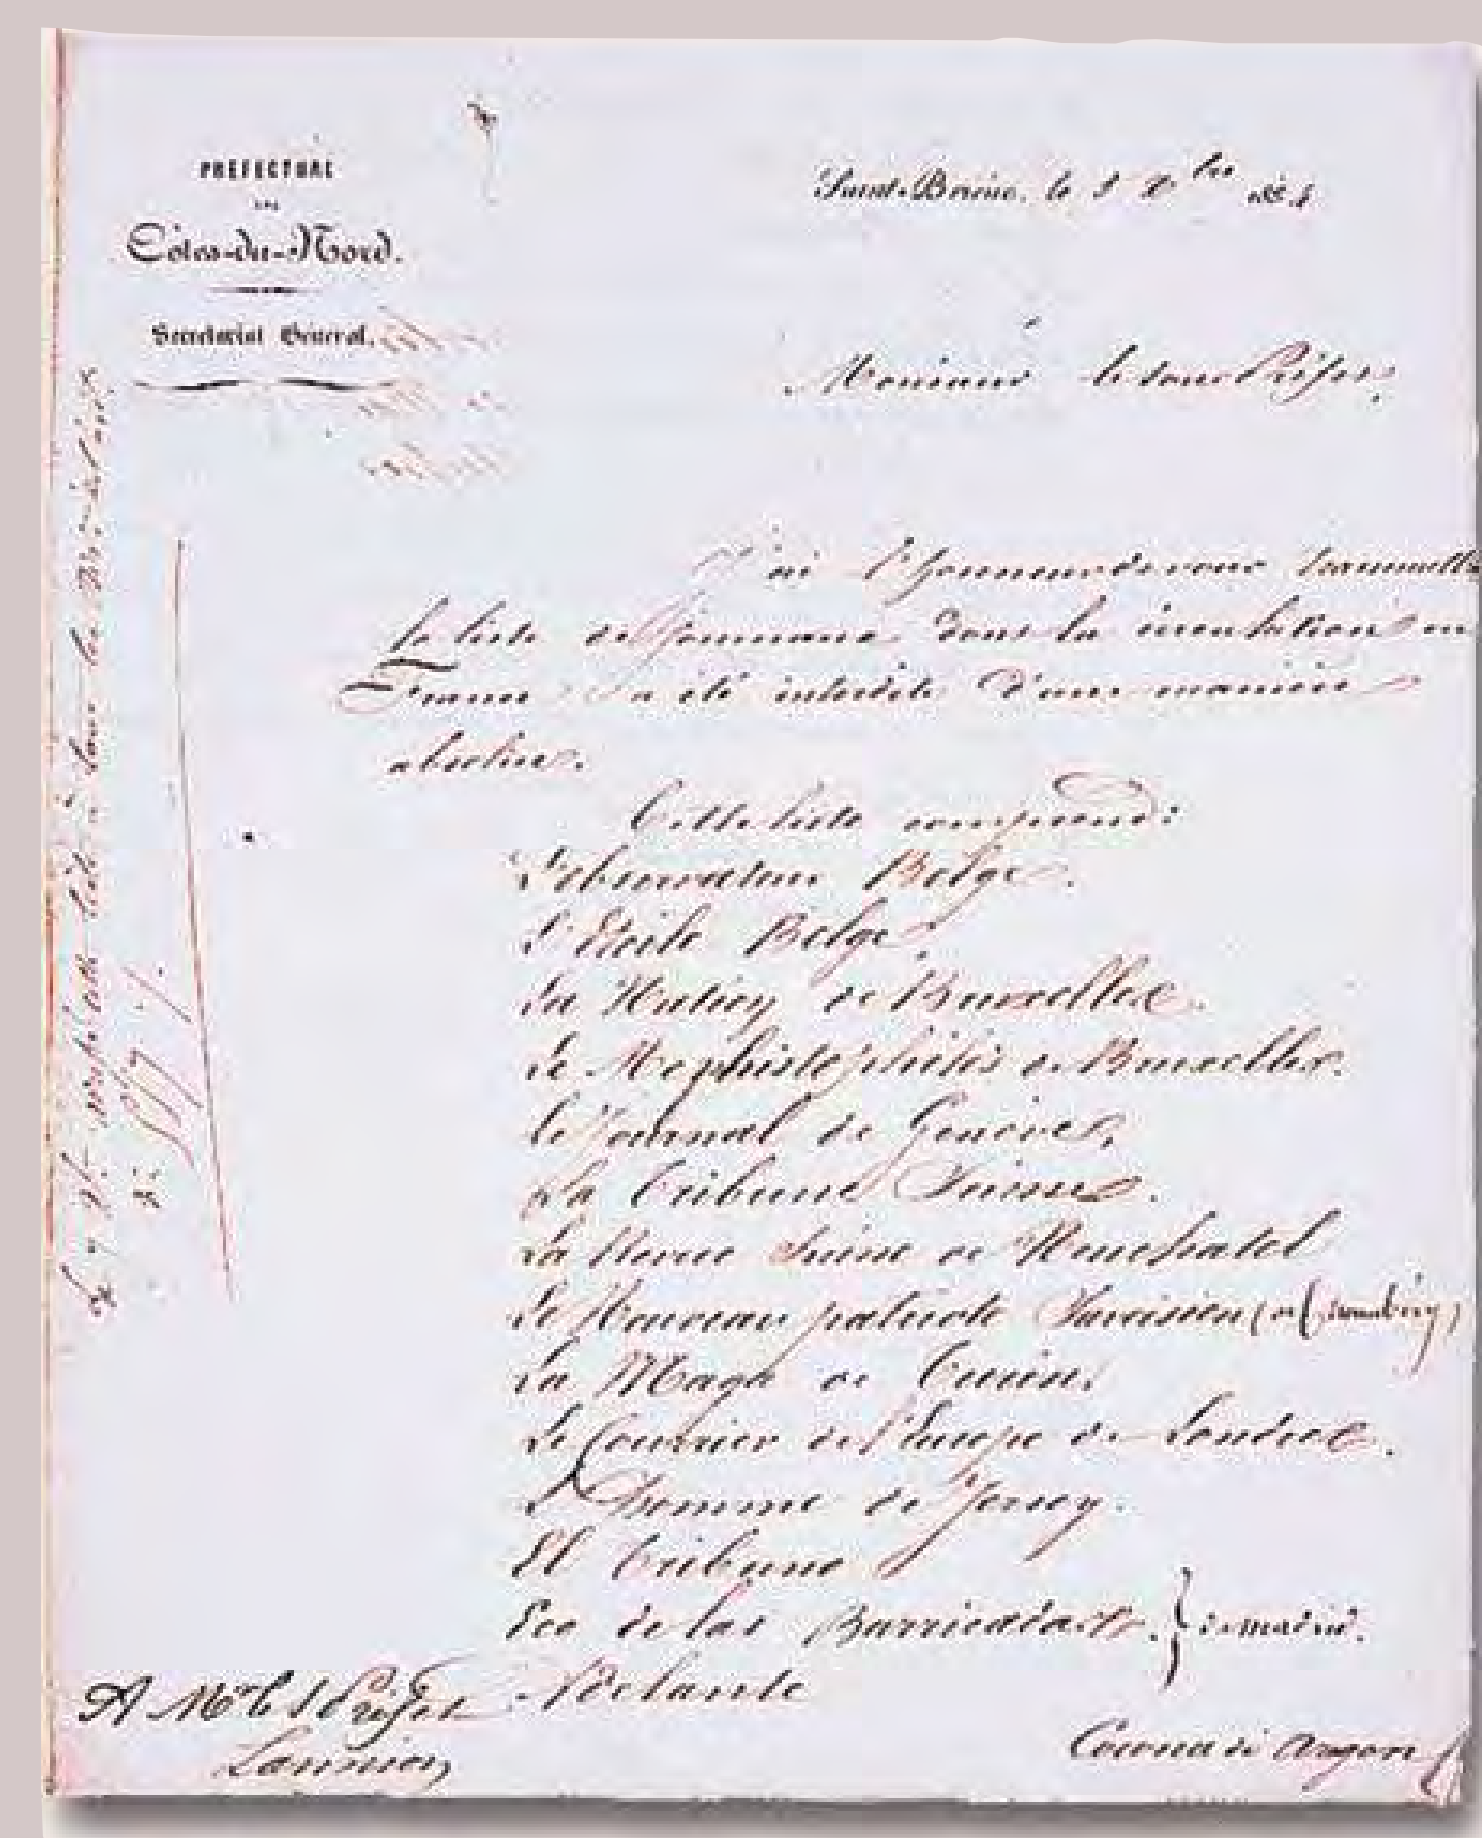 PRÉFECTURE
DES
Côtes-du-Nord.
Secrétariat Général.
Saint-Brieuc, le 5 Xbre 1854
Monsieur le sous Préfet,
J'ai l'honneur de vous transmettre
la liste des journaux dont la circulation en
France a été interdite d'une manière
absolue.
Cette liste comprend:
L'observateur Belge.
L'Etoile Belge.
La Nation de Bruxelles.
Le Mephistophélès de Bruxelles.
Le Journal de Genève.
La Tribune Suisse.
La Revue Suisse de Neuchatel
Le Nouveau patriote Savoisien (de Chambéry)
La Maga de Turin.
Le Courrier de l'Europe de Londres.
L'Homme de Jersey.
El Tribuno
Eco de las Barricadas. } de Madrid.
Adelante
A Mr le S Préfet
Lannion